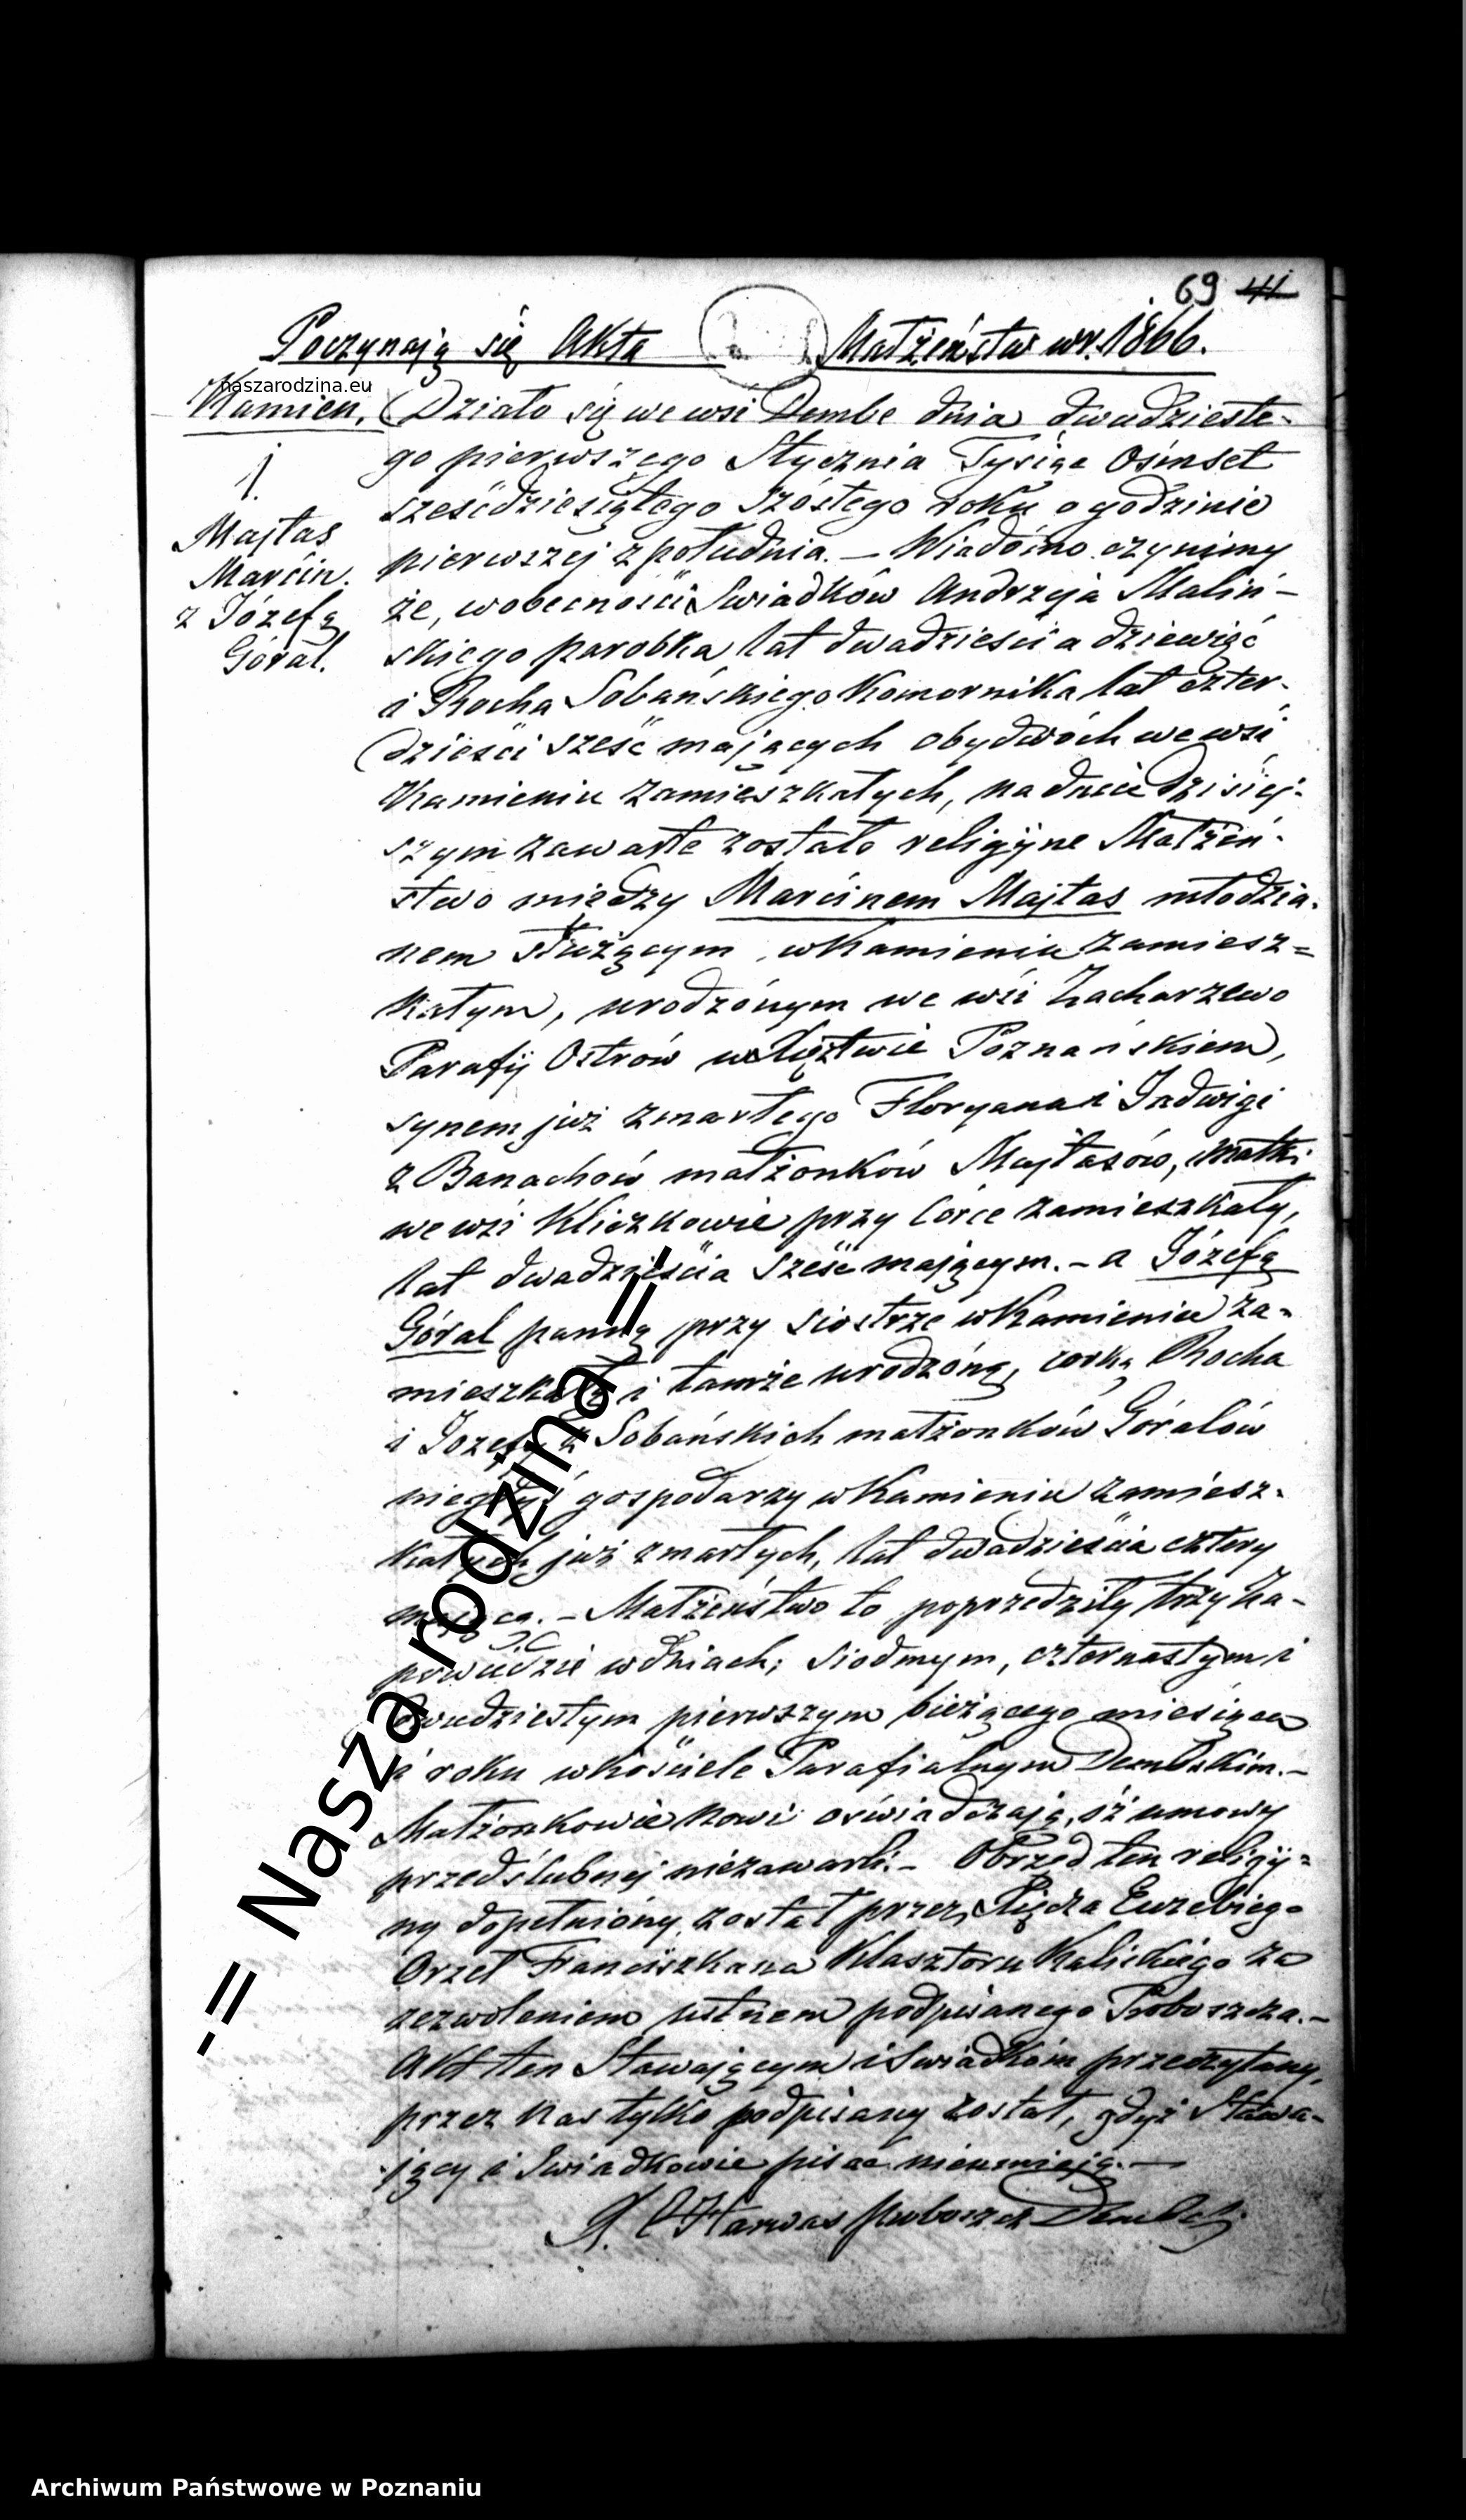 69 41
Poczynają się Akta Małżeństw w r. 1866.
naszarodzina.eu
Kamien.
1.
Majtas
Marcin.
z Józefą
Góral.
Działo się we wsi Dembe dnia dwudzieste-
go pierwszego Stycznia Tysiąc Ośmset
sześćdziesiątego szóstego roku o godzinie
pierwszej z południa. — Wiadomo czynimy
że, w obecności Swiadków Andrzeja Maliń-
skiego parobka lat dwadzieścia dziewięć
i Rocha Sobańskiego Komornika lat czter-
dzieści sześć mających obydwóch we wsi
Kamieniu zamieszkałych, na dniu dzisiej-
szym zawarte zostało religijne Małżeń-
stwo między Marcinem Majtas młodzia-
nem służącym, w Kamieniu zamiesz=
kałym, urodzonym we wsi Zacharzewo
Parafij Ostrów w Xięztwie Poznańskiem,
synem już zmarłego Floryana i Jadwigi
z Banachów małżonków Majtasów, matki
we wsi Kliczkowie przy córce zamieszkały,
lat dwadzieścia sześć mającym. - a Józefą
Góral panną przy siostrze w Kamieniu za-
mieszkałą i tamże urodzoną, corką Rocha
i Jozefy z Sobańskich małżonków Góralów
niegdyś gospodarzy w Kamieniu zamiesz-
kałych już zmarłych, lat dwadzieścia cztery
mającą. - Małżeństwo to poprzedziły trzy Za-
powiedzie w dniach; siodmym, czternastym i
dwudziestym pierwszym bieżącego miesiąca
i roku w kościele Parafialnym Dembskim. -
Małżonkowie nowi oświadczają, iż umowy
przedślubnej niezawarli. - Obrzęd ten religij=
ny dopełniony został przez Xiędza Euzebiego
Orzeł Franciszkana Klasztoru Kaliskiego za
zezwoleniem ustnem podpisanego Proboszcza. -
Akt ten Stawającym i Swiadkom przeczytany,
przez nas tylko podpisany został, gdyż Stawa-
jący i Swiadkowie pisać nieumieją. —
X. Harwas Proboszcz Dembski
-= Nasza rodzina =-
Archiwum Państwowe w Poznaniu